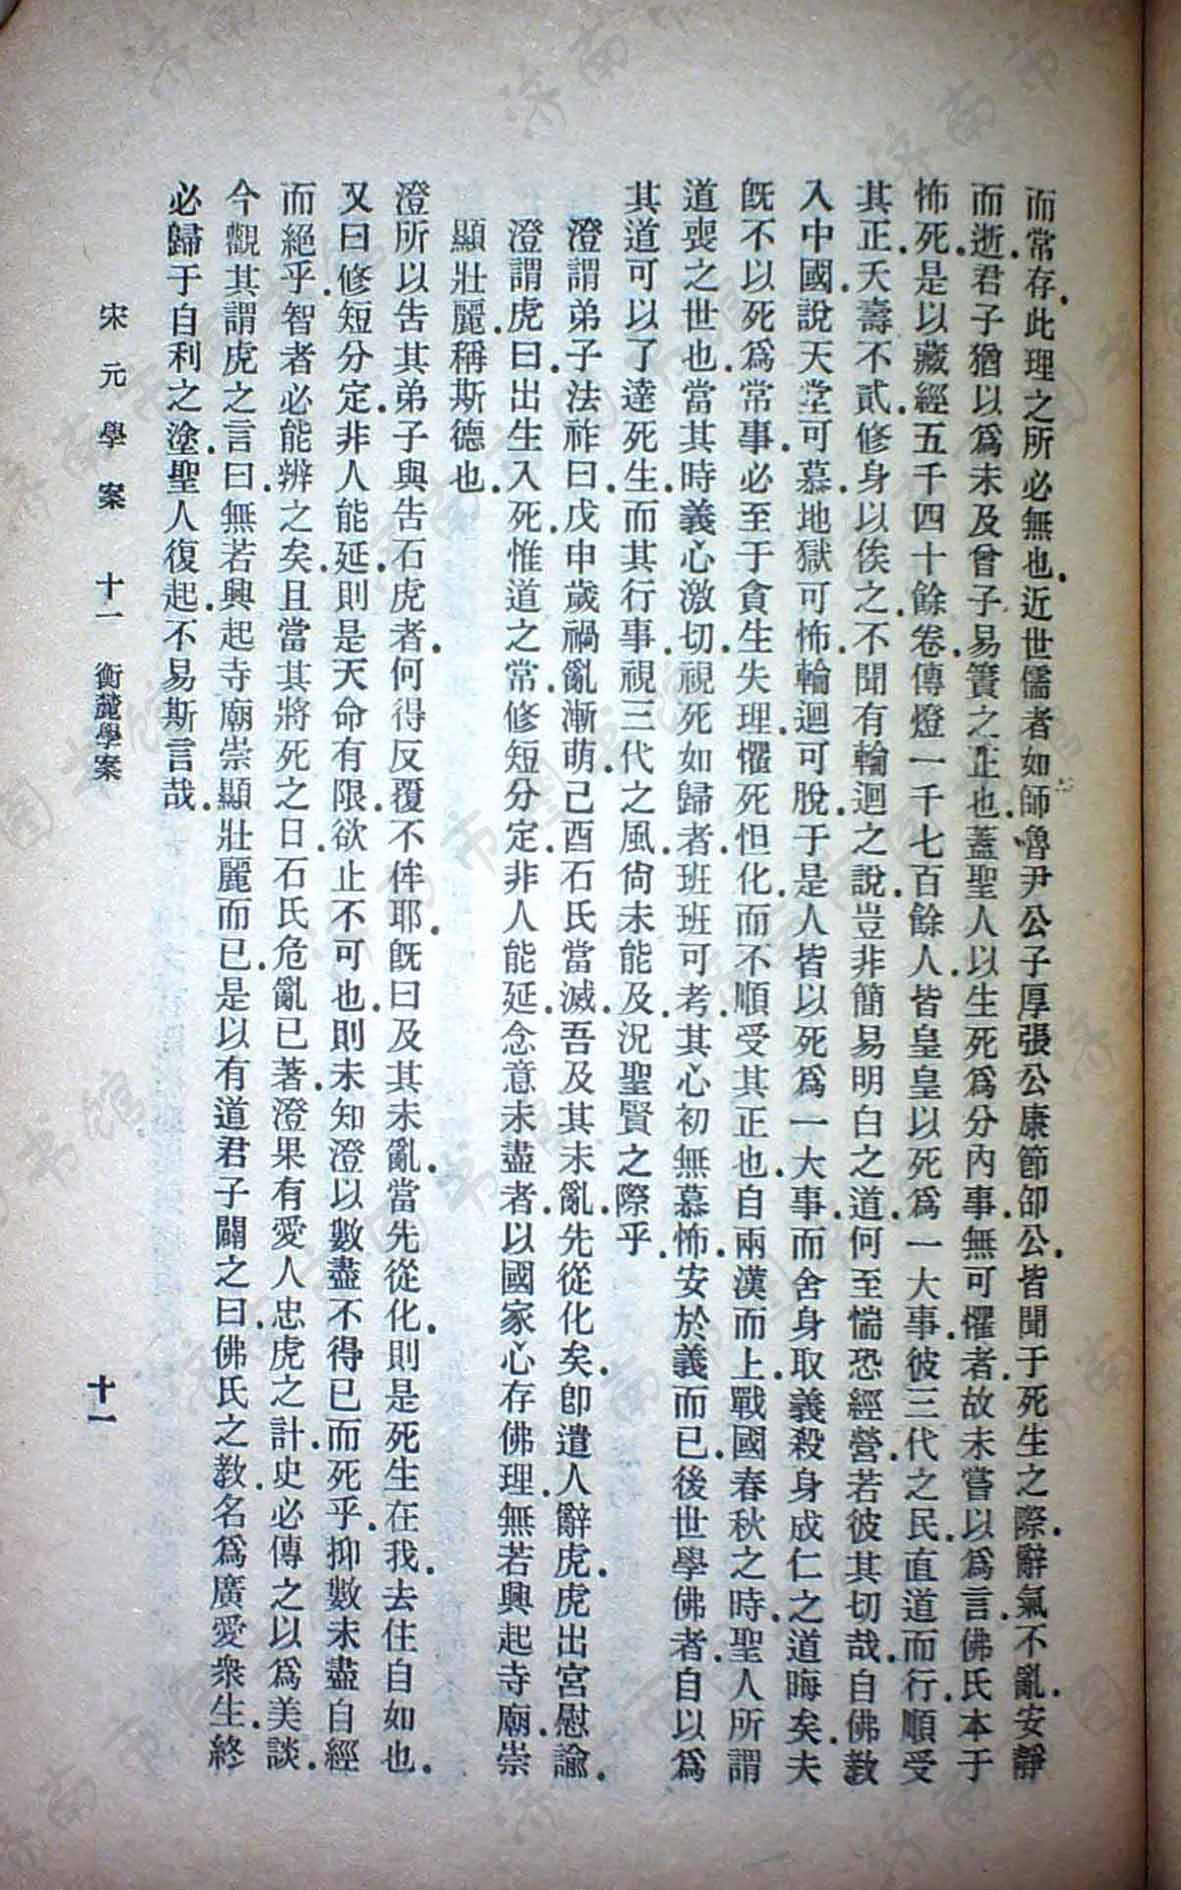 而常存此理之所必無也近世儒者如師魯尹公子厚張公康節邵公皆聞于死生之際辭氣不亂安靜
而逝君子猶以爲未及曾子易簀之正也蓋聖人以生死爲分內事無可懼者故未嘗以爲言佛氏本于
怖死是以藏經五千四十餘卷傳燈一千七百餘人皆皇皇以死爲一大事彼三代之民直道而行順受
其正夭壽不貳修身以俟之不聞有輪迴之說豈非簡易明白之道何至惴恐經營若彼其切哉自佛敎
入中國說天堂可慕地獄可怖輪迴可脫于是人皆以死爲一大事而舍身取義殺身成仁之道晦矣夫
旣不以死爲常事必至于貪生失理懼死怛化而不順受其正也自兩漢而上戰國春秋之時聖人所謂
道喪之世也當其時義心激切視死如歸者班班可考其心初無慕怖安於義而已後世學佛者自以爲
其道可以了達死生而其行事視三代之風尙未能及況聖賢之際乎
澄謂弟子法祚曰戊申歲禍亂漸萌己酉石氏當滅吾及其未亂先從化矣卽遣人辭虎虎出宮慰諭
澄謂虎曰出生入死惟道之常修短分定非人能延念意未盡者以國家心存佛理無若興起寺廟崇
顯壯麗稱斯德也
澄所以告其弟子與告石虎者何得反覆不侔耶旣曰及其未亂當先從化則是死生在我去住自如也
又曰修短分定非人能延則是天命有限欲止不可也則未知澄以數盡不得已而死乎抑數未盡自經
而絕乎智者必能辨之矣且當其將死之日石氏危亂已著澄果有愛人忠虎之計史必傳之以爲美談
今觀其謂虎之言曰無若興起寺廟崇顯壯麗而已是以有道君子闢之曰佛氏之教名爲廣愛衆生終
必歸于自利之塗聖人復起不易斯言哉
宋元學案 十一 衡麓學案 十一
济南市图书馆